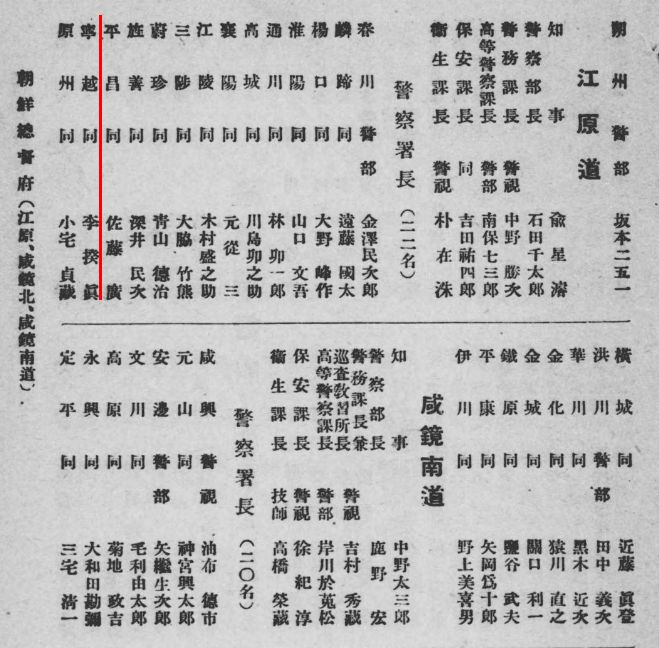 朔州 警部 坂本二五一
江原道
知事 兪星濬
警察部長 石田千太郎
警務課長 警視 中野勝次
高等警察課長 警部 南保七三郎
保安課長 同 吉田祐四郎
衞生課長 警視 朴在洙
警察署長(二二名)
春川 警部 金澤民次郎
麟蹄 同 遠藤國太
楊口 同 大野峰作
淮陽 同 山口文吾
通川 同 林卯一郎
高城 同 川島卯之助
襄陽 同 元從三
江陵 同 木村盛之助
三陟 同 大脇竹熊
蔚珍 同 靑山德治
旌善 同 深井民次
平昌 同 佐藤廣
寧越 同 李揆眞
原州 同 小宅貞藏
橫城 同 近藤眞登
洪川 警部 田中義次
華川 同 黑木近次
金化 同 猿川直之
金城 同 關口利一
鐵原 同 鹽谷武夫
平康 同 矢岡爲十郎
伊川 同 野上美喜男
咸鏡南道
知事 中野太三郎
警察部長 鹿野宏
警務課長兼
巡査敎習所長 警視 吉村秀藏
高等警察課長 警部 岸川於菟松
保安課長 警視 徐紀淳
衞生課長 技師 高橋榮藏
警察署長(二〇名)
咸興 警視 油布德市
元山 同 神宮興太郎
安邊 警部 矢繼生次郎
文川 同 毛利由太郎
高原 同 菊地政吉
永興 同 大和田勘彌
定平 同 三宅淸一
朝鮮總督府(江原、咸鏡北、咸鏡南道)